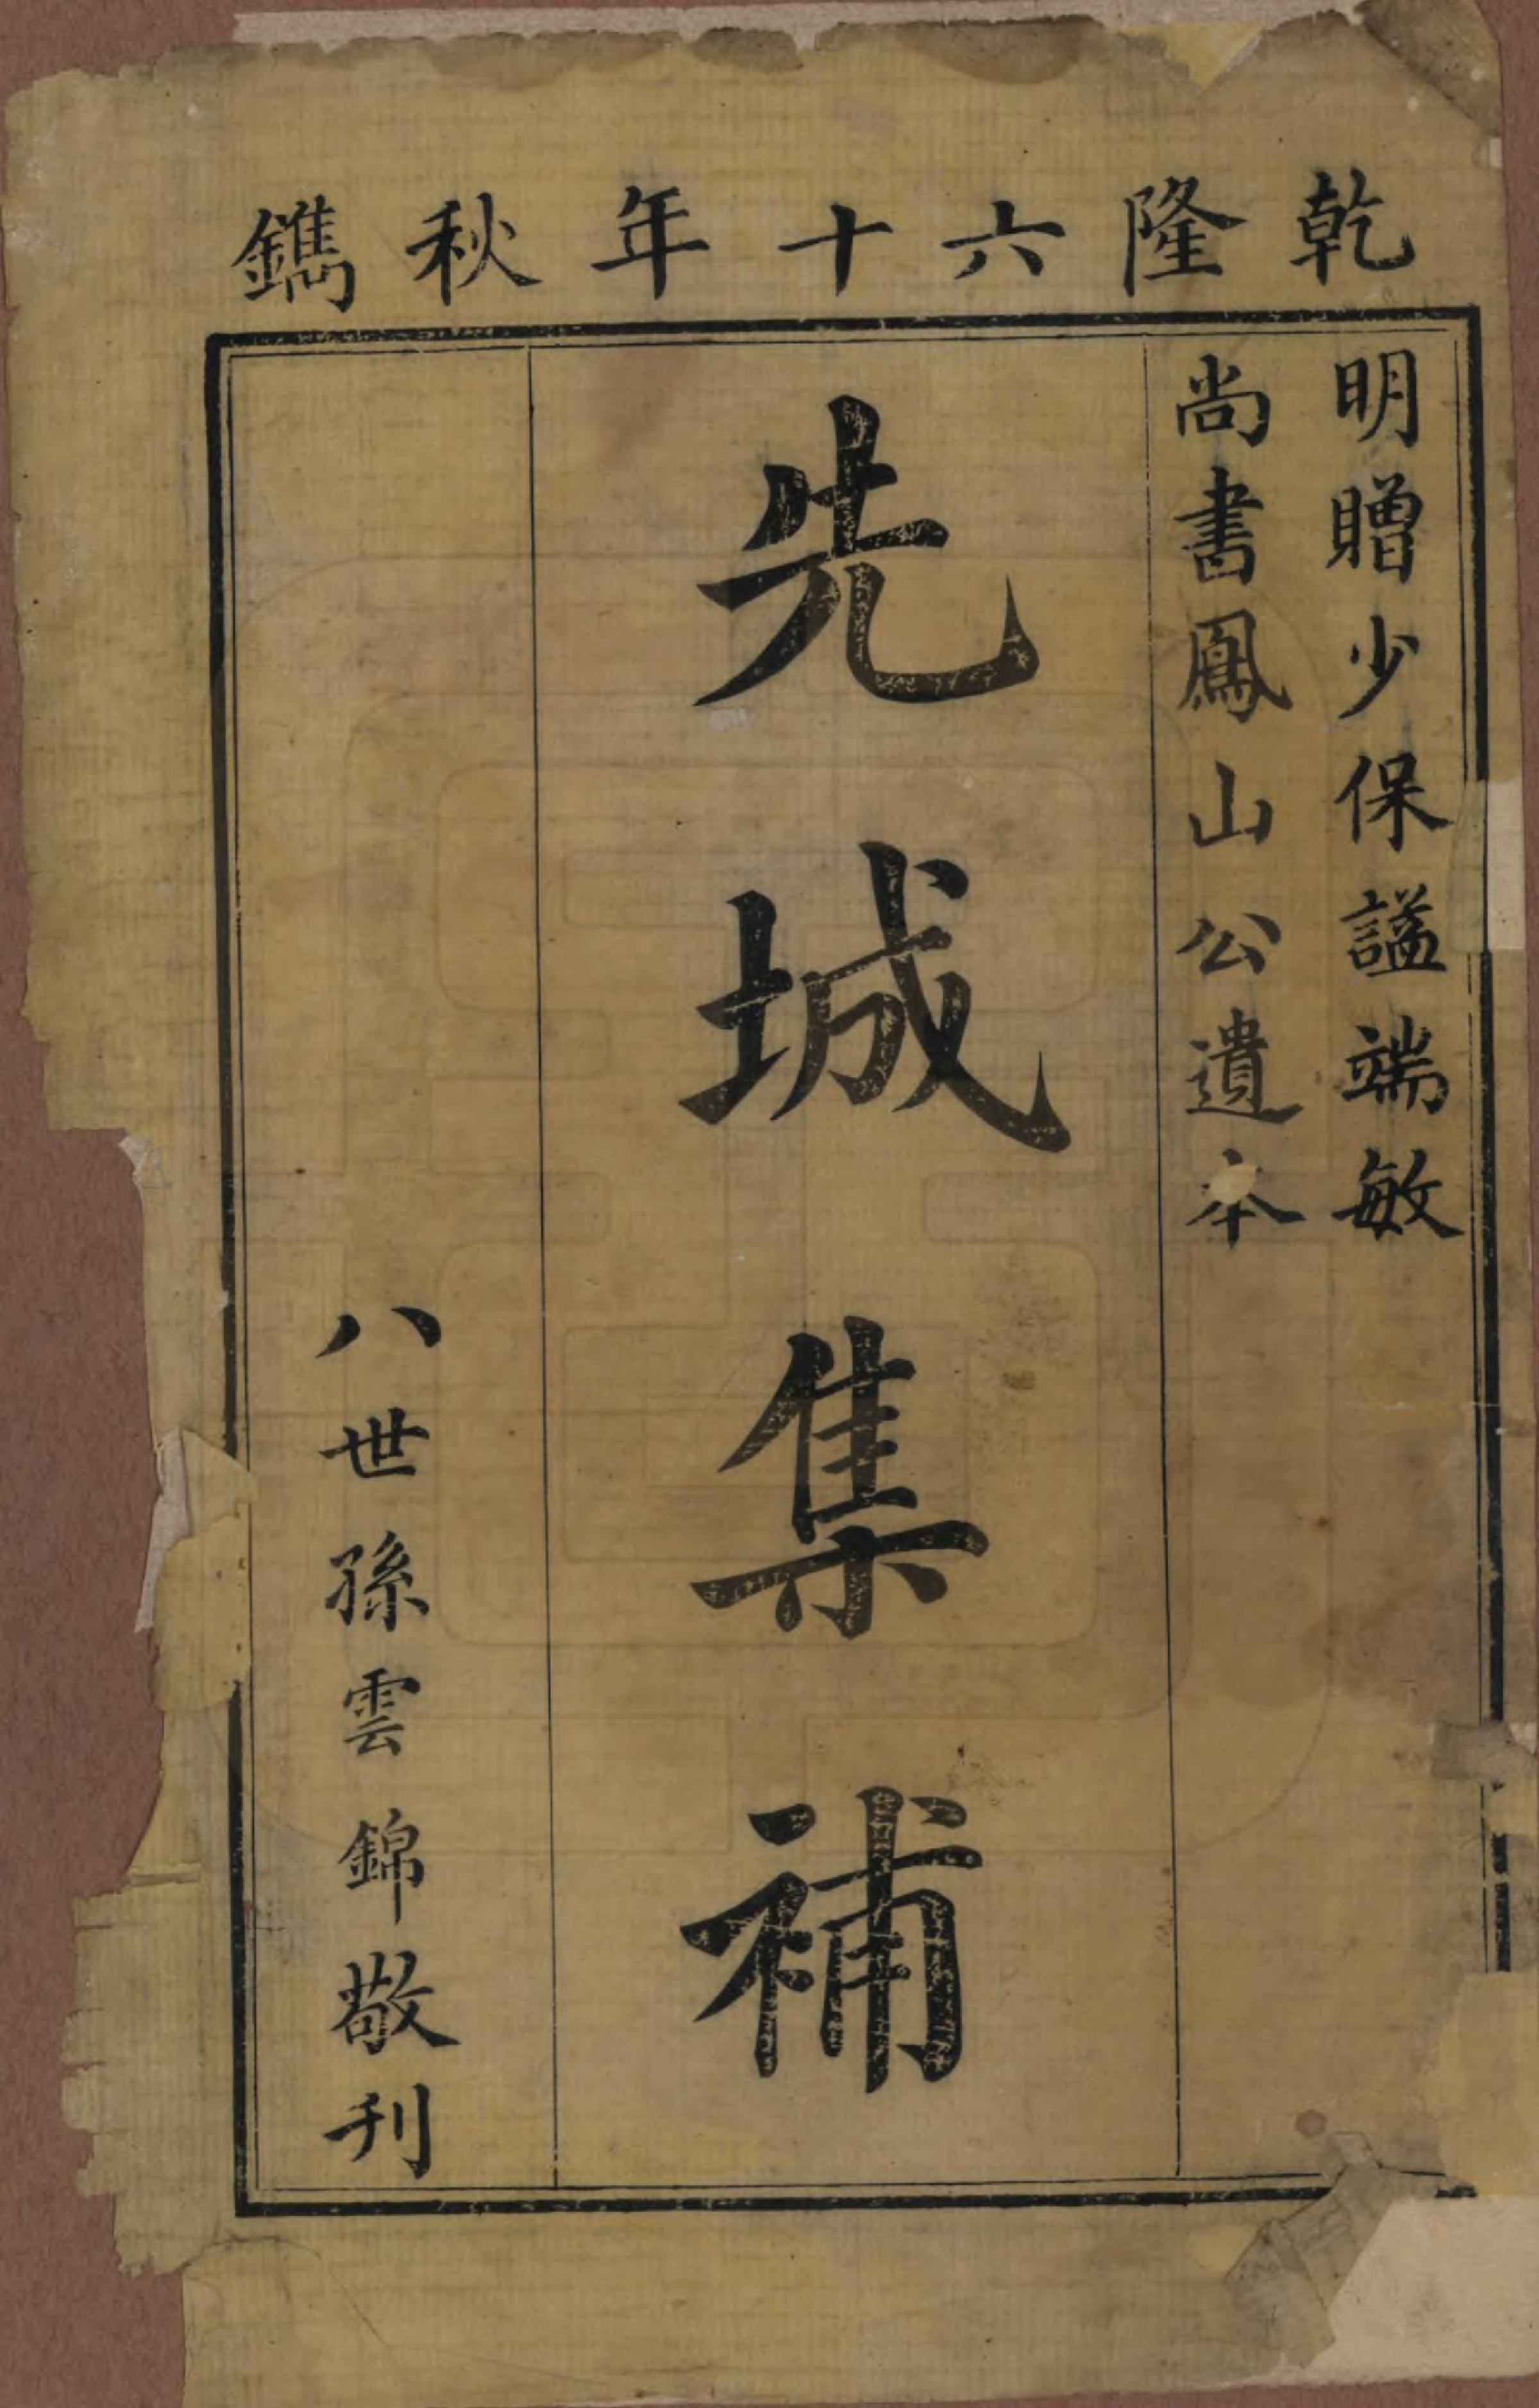 乾隆六十年秋鐫
明贈少保謚端敏
尚書鳳山公遺本
先城集補
八世孫雲錦敬刊